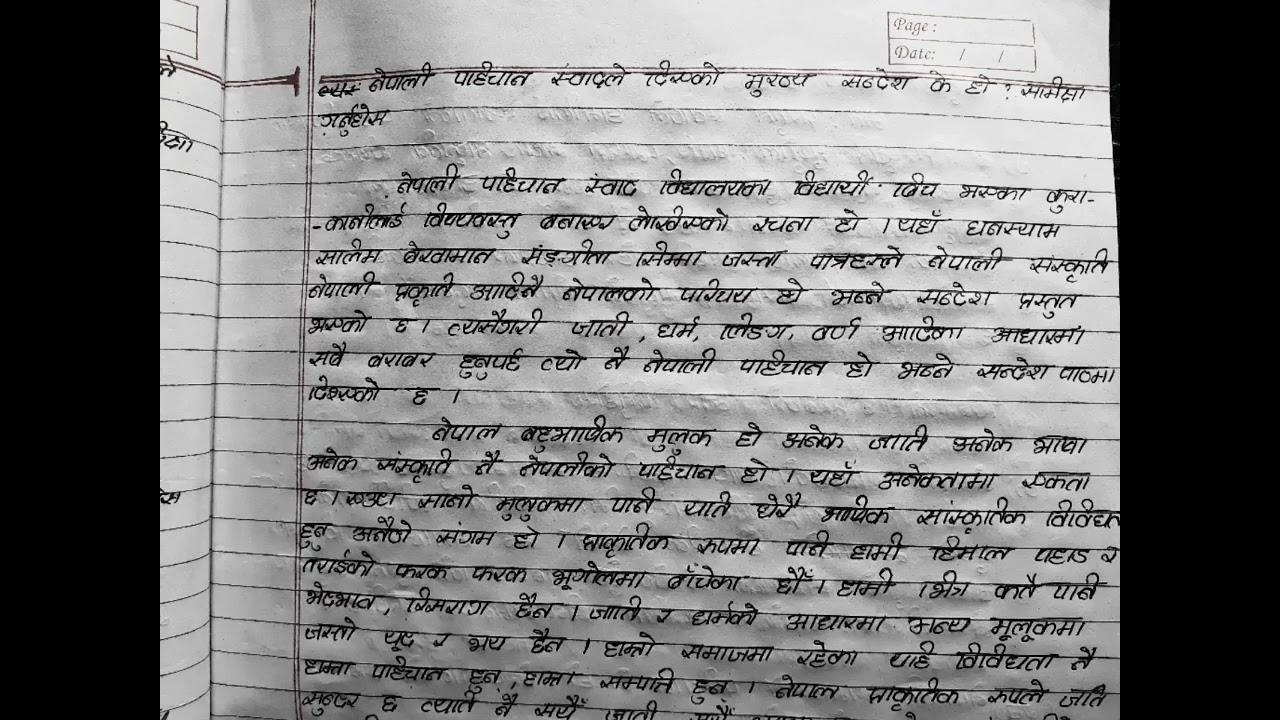 Page :
Date: / /
नेपाली पहिचान स्वादले दिएको मुख्य सन्देश के हो ? समिक्षा
गर्नुहोस
नेपाली पाहिचान स्वाद विद्यालयका विद्यार्थी बिच भएका कुरा-
-कानीलाई विषयवस्तु बनाएर लेखिएको रचना हो । यहाँ घनस्याम
सालिम वेखामान संङ्गीता सिम्मा जस्ता पात्रहरुले नेपाली संस्कृति
नेपाली प्रकृति आदिनै नेपालको परिचय हो भन्ने सन्देश प्रस्तुत
भएको छ । त्यसैगरी जाती, धर्म, लिङग, वर्ण आदिका आधारमा
सबै बराबर हुनुपर्छ त्यो नै नेपाली पाहिचान हो भन्ने सन्देश पाठमा
दिइएको छ ।
नेपाल बहुभाषिक मुलुक हो अनेक जाति अनेक भाषा
अनेक संस्कृति नै नेपालीको पाहिचान हो । यहाँ अनेकतामा एकता
छ । एउटा सानो मुलुकमा पनि यति धेरै भाषिक सांस्कृतिक विविधता
हुनु अनौठो संगम हो । प्राकृतिक रुपमा पनि हामी हिमाल पहाड र
तराईको फरक फरक भूगोलमा बाँचेका छौँ । हामी भित्र कतै पनि
भेदभाव, रिसराग छैन । जाति र धर्मको आधारमा अन्य मूलूकमा
जस्तो यूद्द र भय छैन । हाम्रो समाजमा रहेका यहि विविधता नै
हाम्रा पाहिचान हुन, हाम्रा सम्पति हुन । नेपाल प्राकृतिक रुपले जति
सुन्दर छ त्यति नै सयौँ जाती सयौँ